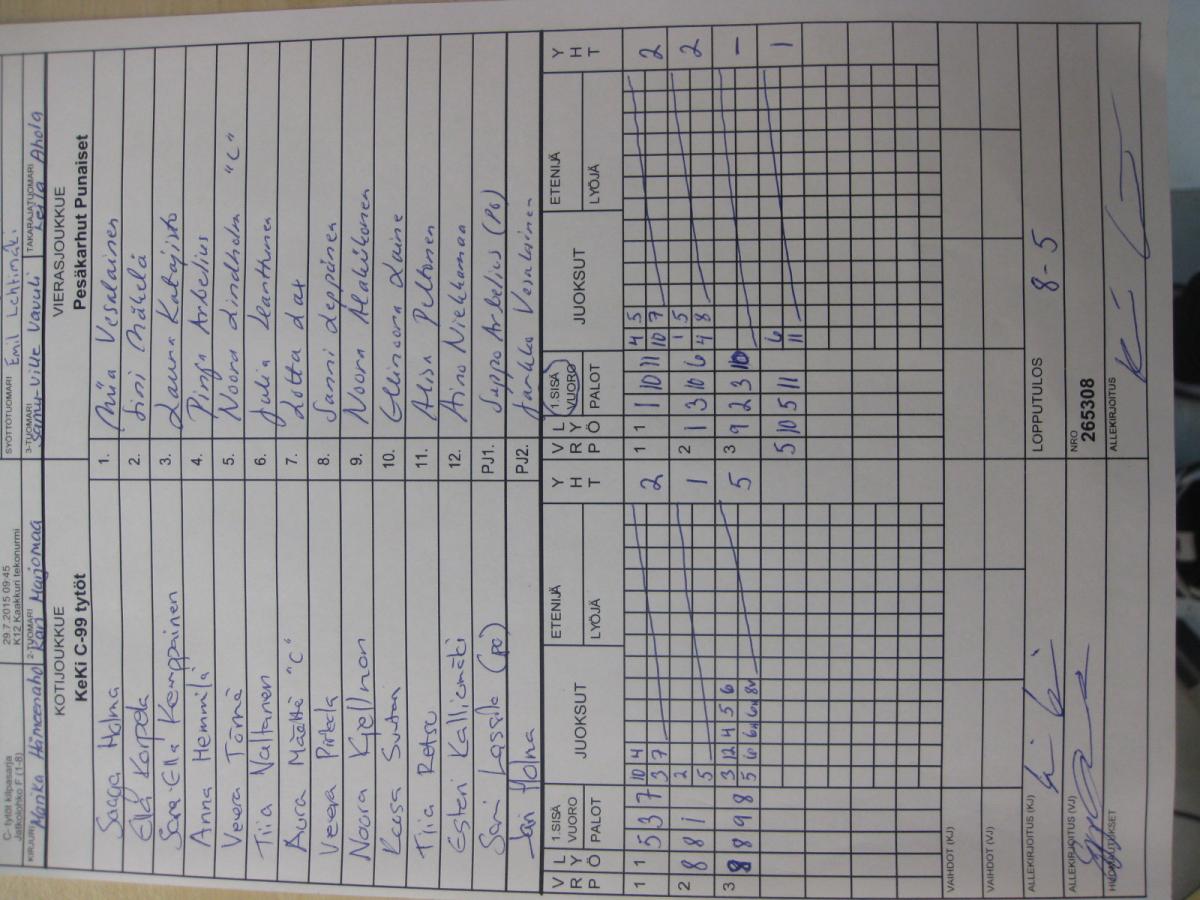 C- tytöt kilpasarja
Jatkolohko F (1-8)
29.7.2015 09:45
K12 Kaakkuri tekonurmi
SYÖTTÖTUOMARI Emil Lehtimäki
KIRJURI Monika Hämeenaho
2-TUOMARI Kari Marjomaa
3-TUOMARI Samu-Ville Vavuli
TAKARAJATUOMARI Leila Ahola
KOTIJOUKKUE
KeKi C-99 tytöt
VIERASJOUKKUE
Pesäkarhut Punaiset
Saaga Holma 1. Miia Vesalainen
Ella Korpela 2. Sini Mäkelä
Sara Ella Kemppainen 3. Laura Katajisto
Anna Hemmilä 4. Pinja Arbelius
Veera Törmä 5. Noora Lindholm "C"
Tiia Valtanen 6. Julia Hanttunen
Aura Määttä "C" 7. Lotta Lat
Veera Pirkola 8. Sanni Leppänen
Noora Kjellman 9. Noora Alakiikonen
10. Ellinoora Laine
Tiia Retsu 11. Alisa Peltonen
Esteri Kalliomäki 12. Aino Niekkamaa
Sari Lassila (po) PJ1. Seppo Arbelius (Po)
Jari Holma PJ2. Jarkko Vesalainen
V R P L Y Ö 1.SISÄ VUORO PALOT JUOKSUT ETENIJÄ LYÖJÄ Y H T
V R P L Y Ö 1.SISÄ VUORO PALOT JUOKSUT ETENIJÄ LYÖJÄ Y H T
1 1 5 3 7 10 4 2
3 7
1 1 1 10 11 4 5 2
10 7
2 8 8 1 2 1
5
2 1 3 10 6 1 5 2
4 8
3 8 8 9 8 3 12 4 5 6 5
3 9 2 3 10 –
5 10 5 11 6 1
11
VAIHDOT (KJ)
VAIHDOT (VJ)
ALLEKIRJOITUS (KJ)
LOPPUTULOS 8-5
ALLEKIRJOITUS (VJ)
NRO
265308
HUOMAUTUKSET
ALLEKIRJOITUS